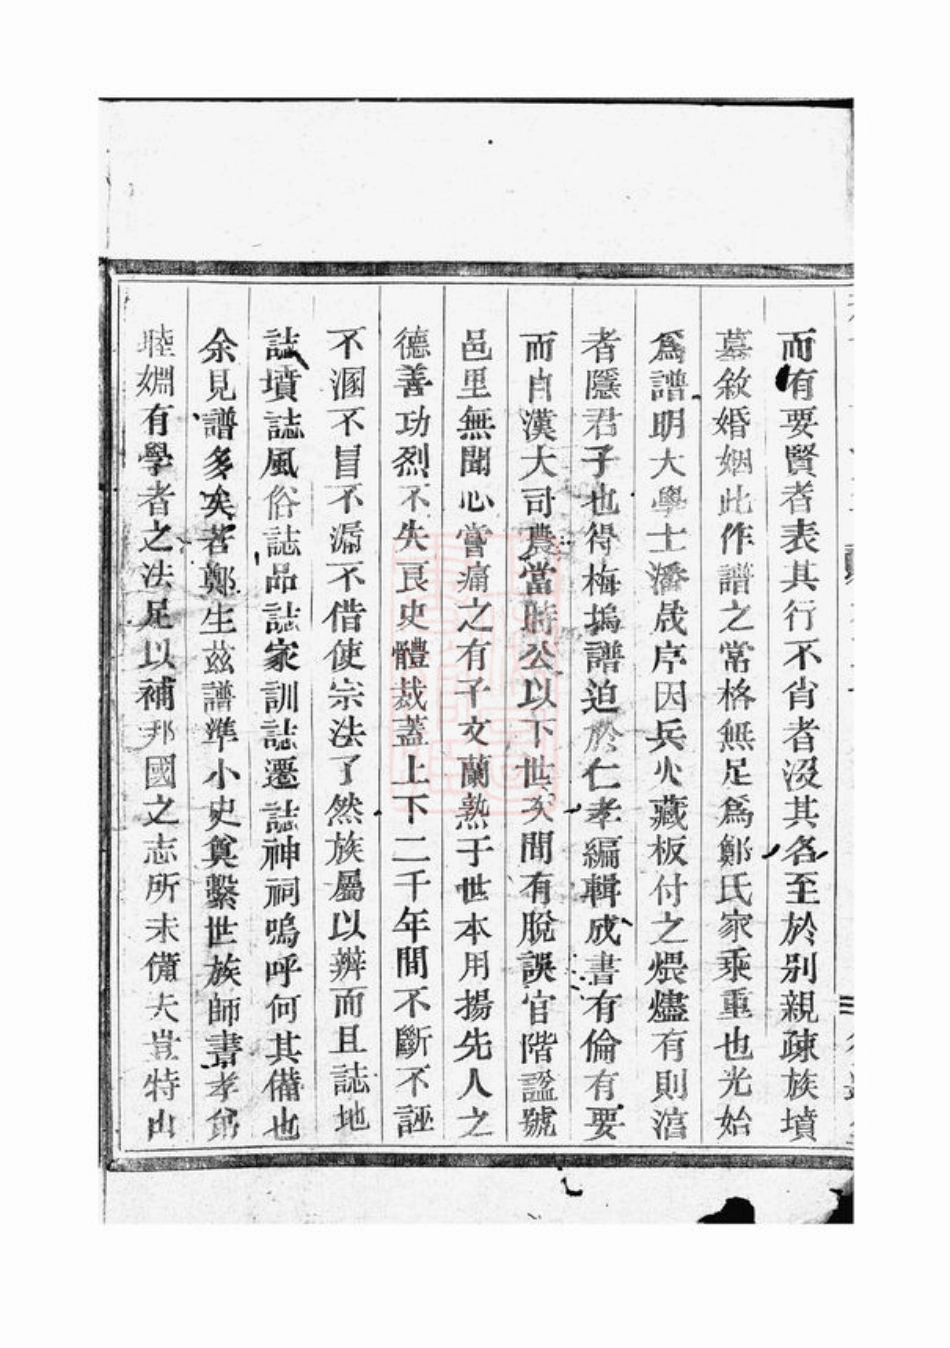 而有要賢者表其行不省者沒其名至於別親疎族墳
墓敘婚姻此作譜之常格無足爲鄭氏家乘重也光始
爲譜明大學士潘晟序因兵火藏板付之煨燼有則湻
者隱君子也得梅塢譜迫於仁孝編輯成書有倫有要
而自漢大司農當時公以下世次間有脫誤官階諡號
邑里無聞心嘗痛之有子文蘭熟于世本用揚先人之
德善功烈不失良史體裁蓋上下二千年間不斷不誣
不溷不冒不漏不借使宗法了然族屬以辨而且誌地
誌墳誌風俗誌品誌家訓誌遷誌神祠嗚呼何其備也
余見譜多矣若鄭生茲譜準小史奠繫世族師書孝弟
睦婣有學者之法足以補邦國之志所未備夫豈特山